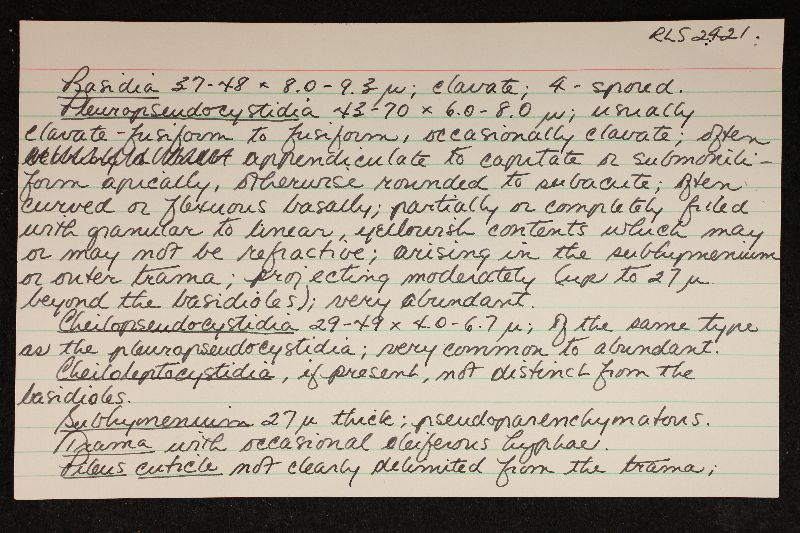 RLS 2421.
Basidia 37-48 × 8.0-9.3 µ; clavate; 4-spored.
Pleuropseudocystidia 43-70 × 6.0-8.0 µ; usually
clavate-fusiform to fusiform, occasionally clavate; often
appendiculate to capitate or submonili-
form apically, otherwise rounded to subacute; often
curved or flexuous basally; partially or completely filled
with granular to linear, yellowish contents which may
or may not be refractive; arising in the subhymenium
or outer trama; projecting moderately (up to 27 µ
beyond the basidioles); very abundant.
Cheilopseudocystidia 29-49 × 4.0-6.7 µ; of the same type
as the pleuropseudocystidia; very common to abundant.
Cheiloleptocystidia, if present, not distinct from the
basidioles.
Subhymenium 27 µ thick; pseudoparenchymatous.
Trama with occasional oleiferous hyphae.
Pileus cuticle not clearly delimited from the trama;